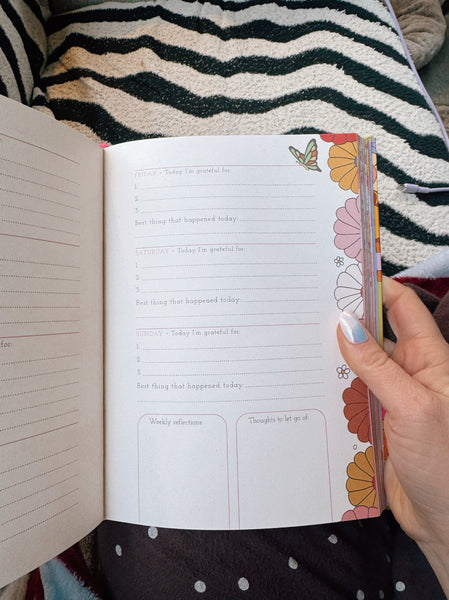 for:
FRIDAY - Today I'm grateful for:
1
2
3
Best thing that happened today:
SATURDAY - Today I'm grateful for:
1
2
3
Best thing that happened today:
SUNDAY - Today I'm grateful for:
1
2
3
Best thing that happened today:
Weekly reflections:
Thoughts to let go of: